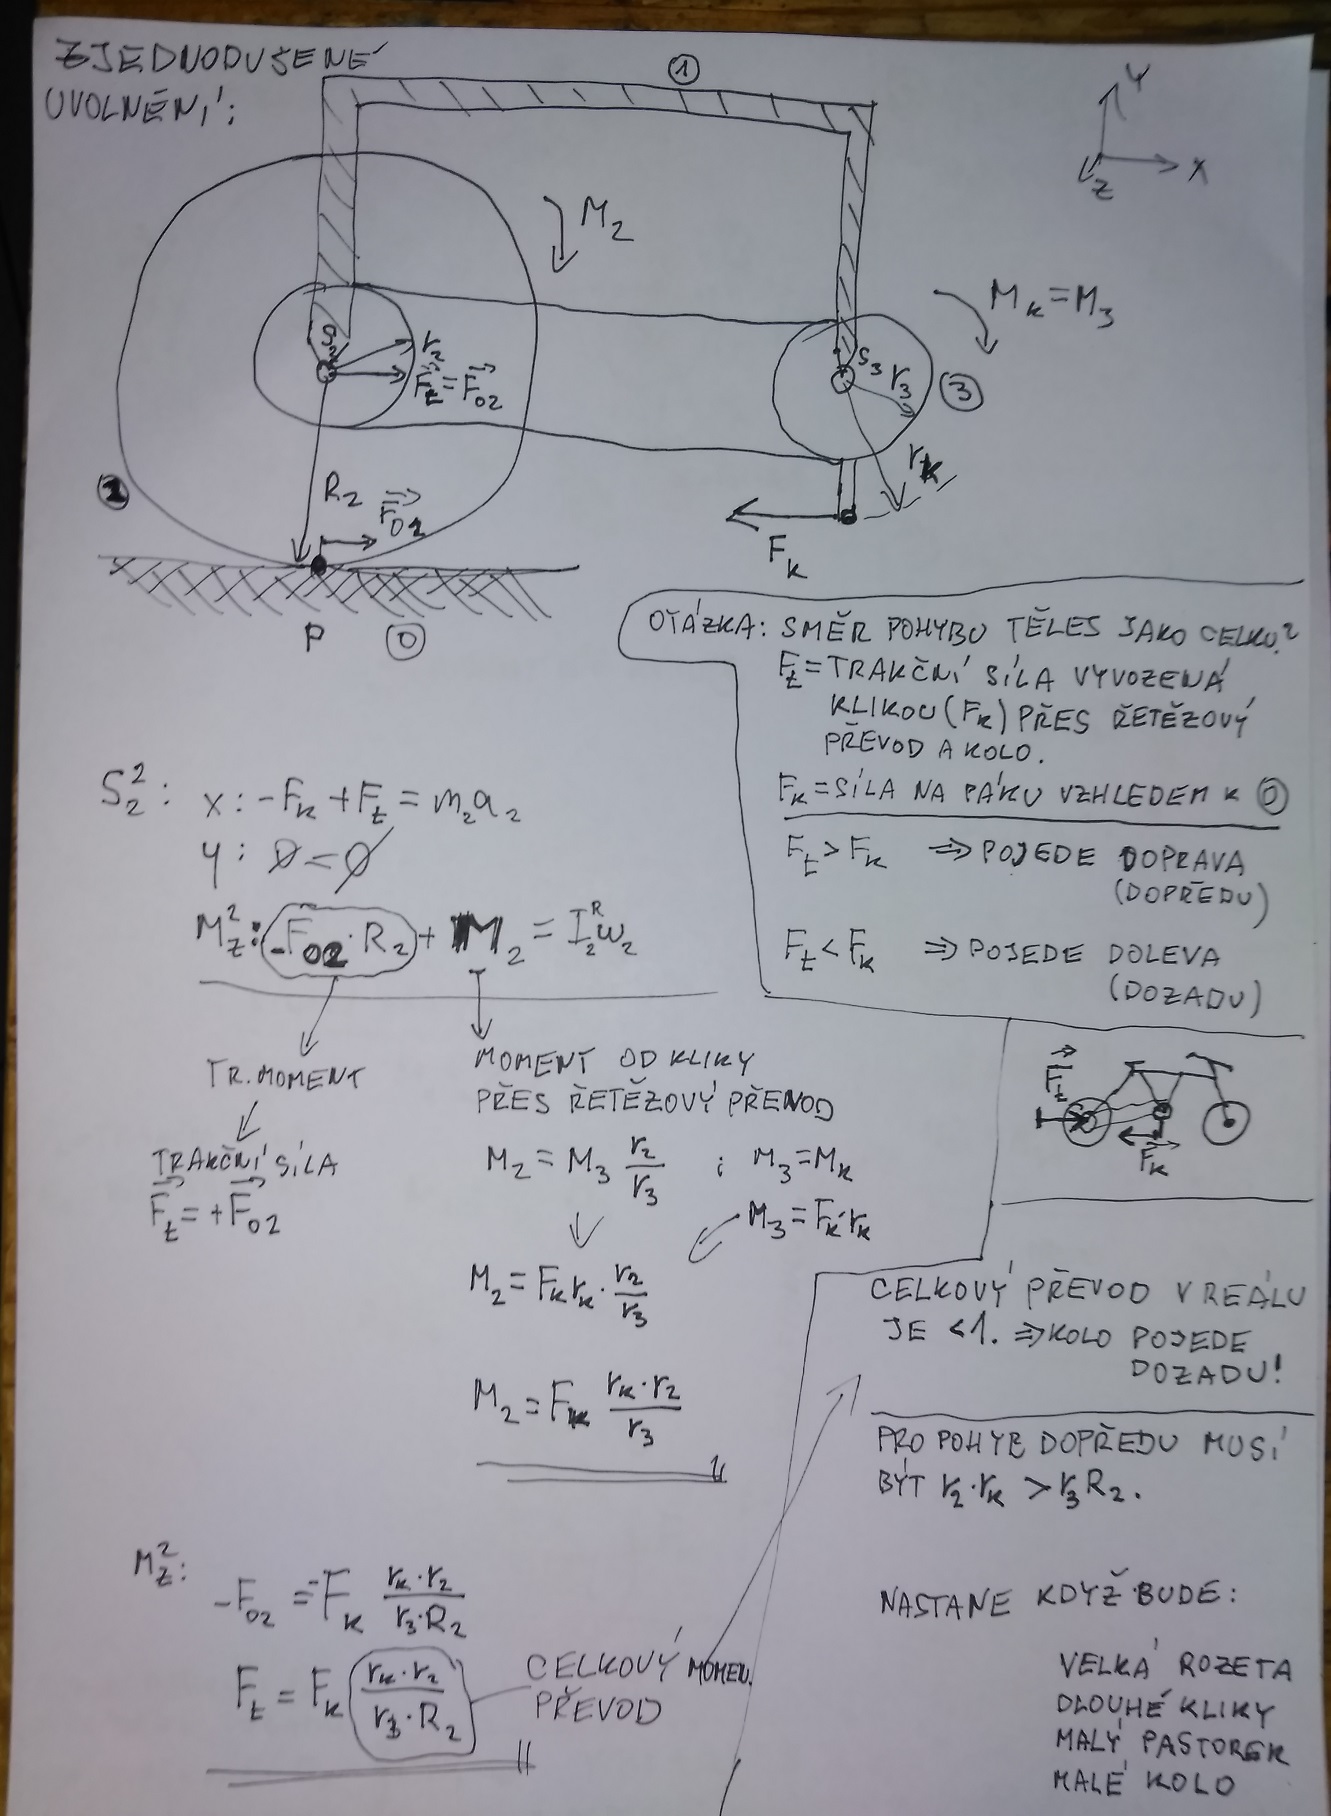 ZJEDNODUŠENÉ
UVOLNĚNÍ:
1
Y
X
Z
M₂
Mₖ=M₃
S₂
r₂
Fₜ=F₀₂
S₃
r₃
3
rₖ
2
R₂
F₀₂
Fₖ
P
0
OTÁZKA: SMĚR POHYBU TĚLES JAKO CELKU?
Fₜ=TRAKČNÍ SÍLA VYVOZENÁ
KLIKOU(Fₖ) PŘES ŘETĚZOVÝ
PŘEVOD A KOLO.
Fₖ=SÍLA NA PÁKU VZHLEDEM K 0
Fₜ>Fₖ ⇒ POJEDE DOPRAVA
(DOPŘEDU)
Fₜ<Fₖ ⇒ POJEDE DOLEVA
(DOZADU)
S₂²: x: -Fₖ+Fₜ=m₂a₂
y: 0=0
M_z²: -F₀₂·R₂+M₂=I₂ᴿω₂
TR. MOMENT
TRAKČNÍ SÍLA
Fₜ=+F₀₂
MOMENT OD KLIKY
PŘES ŘETĚZOVÝ PŘEVOD
M₂=M₃ r₂/r₃ ; M₃=Mₖ
M₃=Fₖ·rₖ
M₂=Fₖrₖ·r₂/r₃
M₂=Fₖ rₖ·r₂/r₃
Fₜ
Fₖ
CELKOVÝ PŘEVOD V REÁLU
JE <1. ⇒KOLO POJEDE
DOZADU!
PRO POHYB DOPŘEDU MUSÍ
BÝT r₂·rₖ>r₃R₂.
NASTANE KDYŽ BUDE:
VELKÁ ROZETA
DLOUHÉ KLIKY
MALÝ PASTOREK
MALÉ KOLO
M_z²:
-F₀₂=-Fₖ rₖ·r₂/r₃·R₂
Fₜ=Fₖ rₖ·r₂/r₃·R₂
CELKOVÝ MOMEN.
PŘEVOD